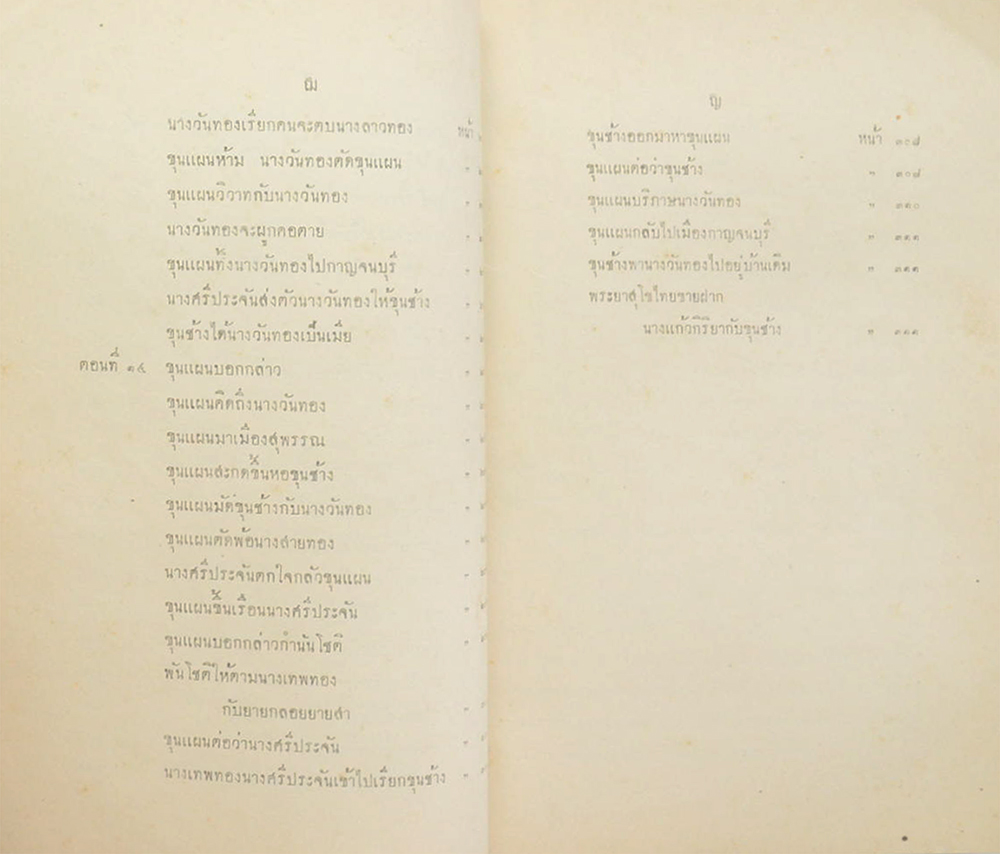 ฌ
นางวันทองเรียกคนจะตบนางลาวทอง หน้า
ขุนแผนห้าม นางวันทองตัดขุนแผน "
ขุนแผนวิวาทกับนางวันทอง "
นางวันทองจะผูกคอตาย "
ขุนแผนทิ้งนางวันทองไปกาญจนบุรี "
นางศรีประจันส่งตัวนางวันทองให้ขุนช้าง "
ขุนช้างได้นางวันทองเป็นเมีย "
ตอนที่ ๑๔ ขุนแผนบอกกล่าว "
ขุนแผนคิดถึงนางวันทอง "
ขุนแผนมาเมืองสุพรรณ "
ขุนแผนสะกดขึ้นหอขุนช้าง "
ขุนแผนมัดขุนช้างกับนางวันทอง "
ขุนแผนตัดพ้อนางสายทอง "
นางศรีประจันตกใจกลัวขุนแผน "
ขุนแผนขึ้นเรือนนางศรีประจัน "
ขุนแผนบอกกล่าวกำนันโชดี "
พันโชดีให้ตามนางเทพทอง
กับยายกลอยยายสา "
ขุนแผนต่อว่านางศรีประจัน "
นางเทพทองนางศรีประจันเข้าไปเรียกขุนช้าง "
ญ
ขุนช้างออกมาหาขุนแผน หน้า ๓๐๘
ขุนแผนต่อว่าขุนช้าง " ๓๐๘
ขุนแผนบริภาษนางวันทอง " ๓๑๐
ขุนแผนกลับไปเมืองกาญจนบุรี " ๓๑๑
ขุนช้างพานางวันทองไปอยู่บ้านเดิม " ๓๑๑
พระยาสุโขไทยขายฝาก
นางแก้วกิริยากับขุนช้าง " ๓๑๑